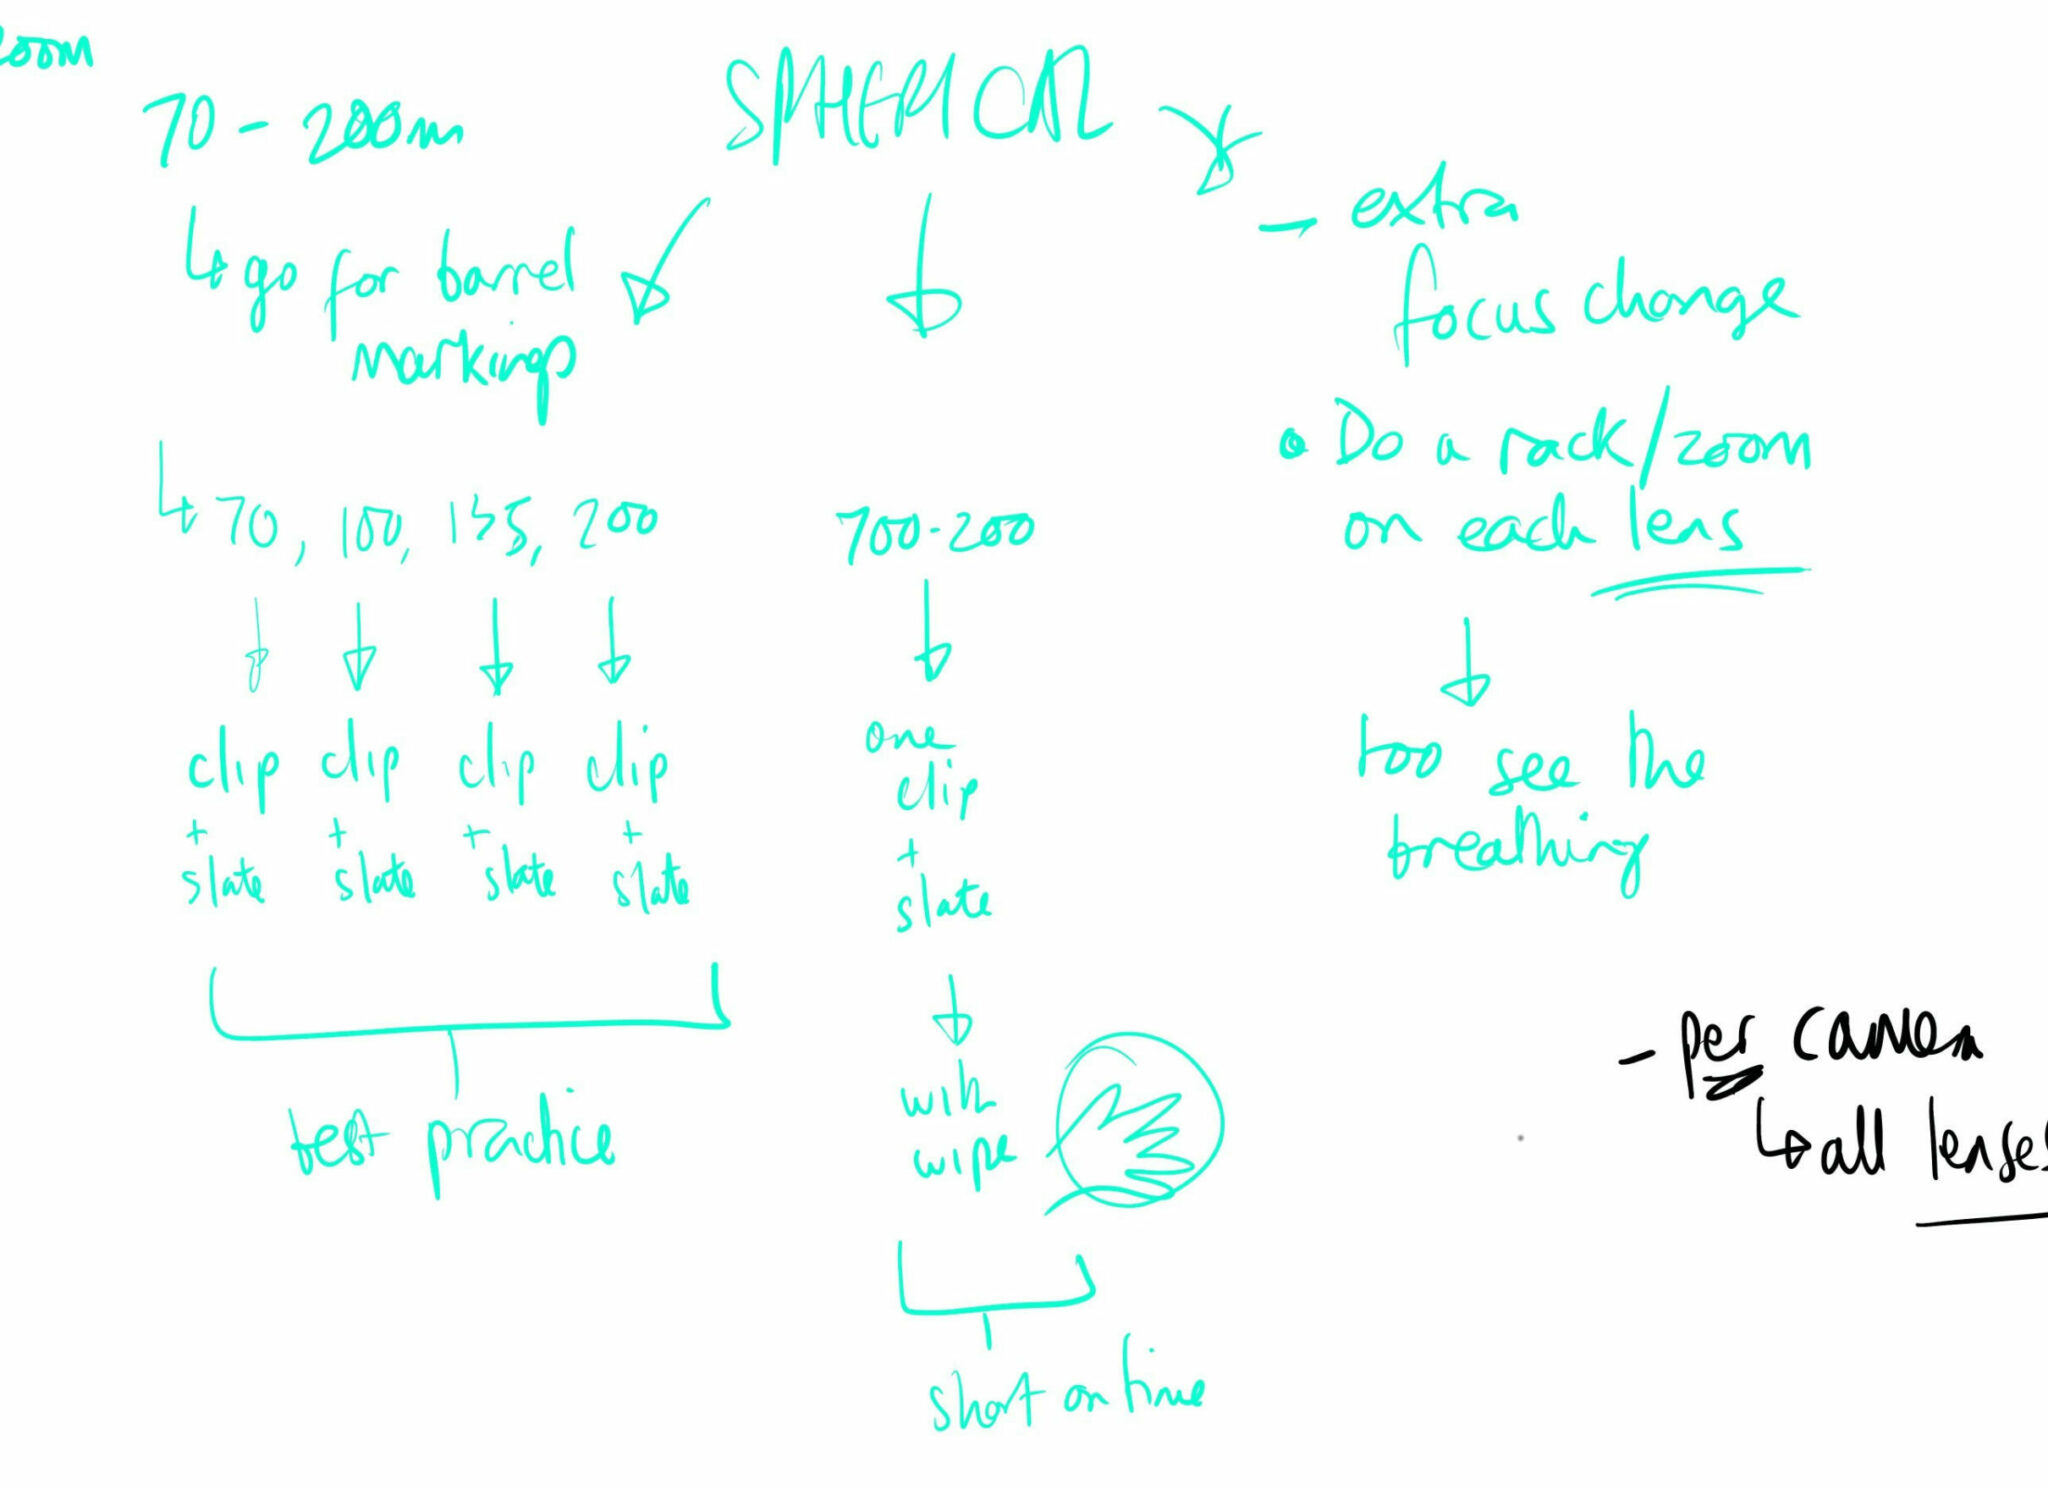 zoom
SPHERICAL
70 - 200m
↳ go for barrel
markings
↳ 70, 100, 135, 200
clip clip clip clip
+ + + +
slate slate slate slate
test practice
700-200
one
clip
+
slate
with
wipe
short on time
- extra
focus change
• Do a rack/zoom
on each lens
too see the
breathing
- per camera
↳ all lenses